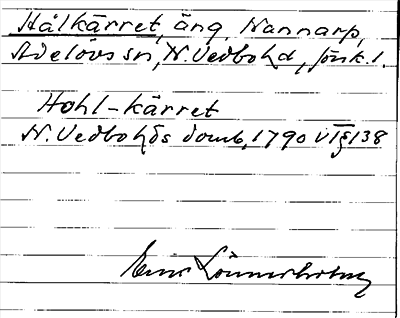 Hålkärret, äng, Nannarp,
Adelövs sn, N. Vedbo hd, Jönk. l.
Hohl-kärret
N. Vedbo hds domb, 1790 VI § 138
Eric Lönnerholm